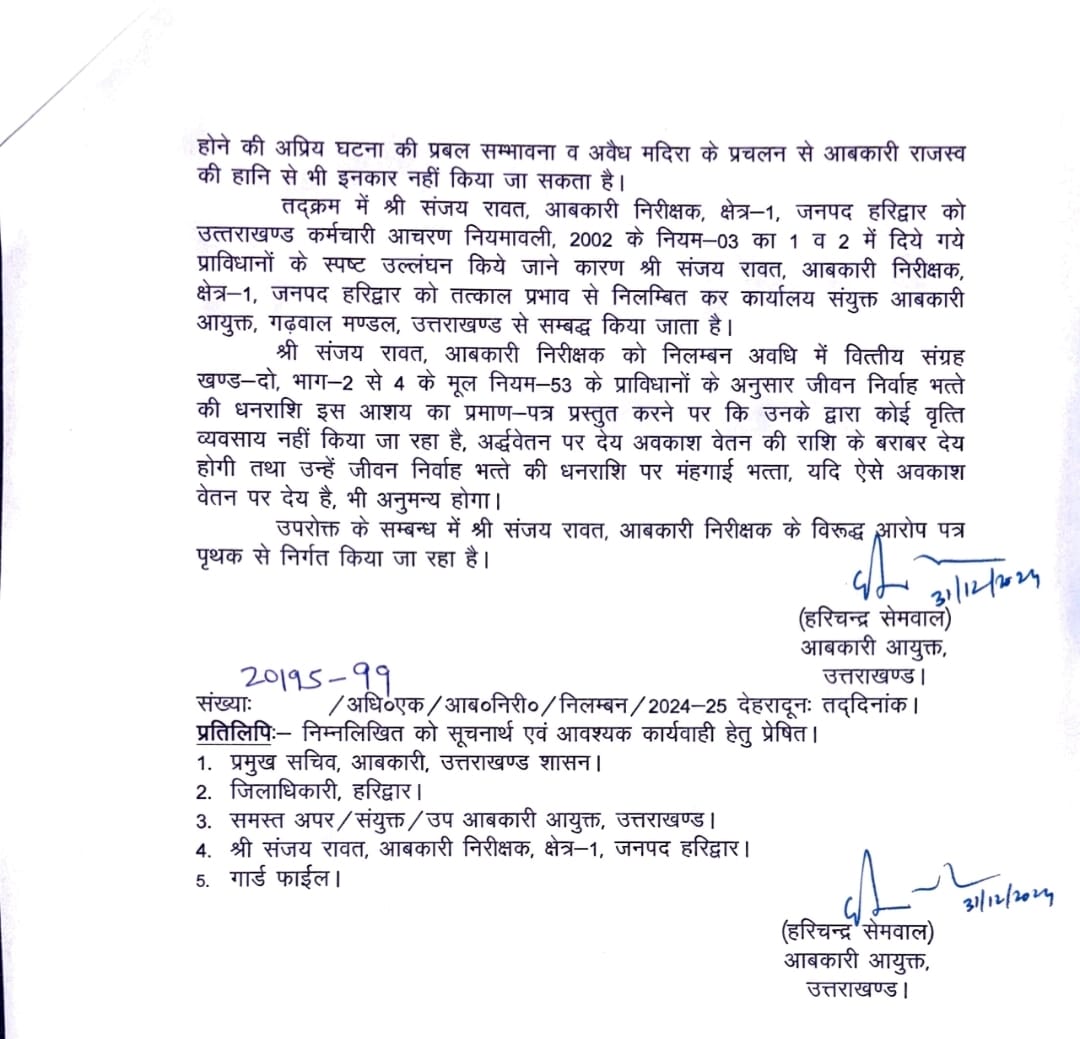 होने की अप्रिय घटना की प्रबल सम्भावना व अवैध मदिरा के प्रचलन से आबकारी राजस्व
की हानि से भी इनकार नहीं किया जा सकता है।
तद्क्रम में श्री संजय रावत, आबकारी निरीक्षक, क्षेत्र–1, जनपद हरिद्वार को
उत्तराखण्ड कर्मचारी आचरण नियमावली, 2002 के नियम–03 का 1 व 2 में दिये गये
प्राविधानों के स्पष्ट उल्लंघन किये जाने कारण श्री संजय रावत, आबकारी निरीक्षक,
क्षेत्र–1, जनपद हरिद्वार को तत्काल प्रभाव से निलम्बित कर कार्यालय संयुक्त आबकारी
आयुक्त, गढ़वाल मण्डल, उत्तराखण्ड से सम्बद्ध किया जाता है।
श्री संजय रावत, आबकारी निरीक्षक को निलम्बन अवधि में वित्तीय संग्रह
खण्ड–दो, भाग–2 से 4 के मूल नियम–53 के प्राविधानों के अनुसार जीवन निर्वाह भत्ते
की धनराशि इस आशय का प्रमाण–पत्र प्रस्तुत करने पर कि उनके द्वारा कोई वृत्ति
व्यवसाय नहीं किया जा रहा है, अर्द्धवेतन पर देय अवकाश वेतन की राशि के बराबर देय
होगी तथा उन्हें जीवन निर्वाह भत्ते की धनराशि पर मंहगाई भत्ता, यदि ऐसे अवकाश
वेतन पर देय है, भी अनुमन्य होगा।
उपरोक्त के सम्बन्ध में श्री संजय रावत, आबकारी निरीक्षक के विरूद्ध आरोप पत्र
पृथक से निर्गत किया जा रहा है।
31/12/2024
(हरिचन्द्र सेमवाल)
आबकारी आयुक्त,
उत्तराखण्ड।
20195-99
संख्याः /अधि०एक/आब०निरी०/निलम्बन/2024–25 देहरादूनः तद्दिनांक।
प्रतिलिपिः– निम्नलिखित को सूचनार्थ एवं आवश्यक कार्यवाही हेतु प्रेषित।
1. प्रमुख सचिव, आबकारी, उत्तराखण्ड शासन।
2. जिलाधिकारी, हरिद्वार।
3. समस्त अपर/संयुक्त/उप आबकारी आयुक्त, उत्तराखण्ड।
4. श्री संजय रावत, आबकारी निरीक्षक, क्षेत्र–1, जनपद हरिद्वार।
5. गार्ड फाईल।
31/12/2024
(हरिचन्द्र सेमवाल)
आबकारी आयुक्त,
उत्तराखण्ड।